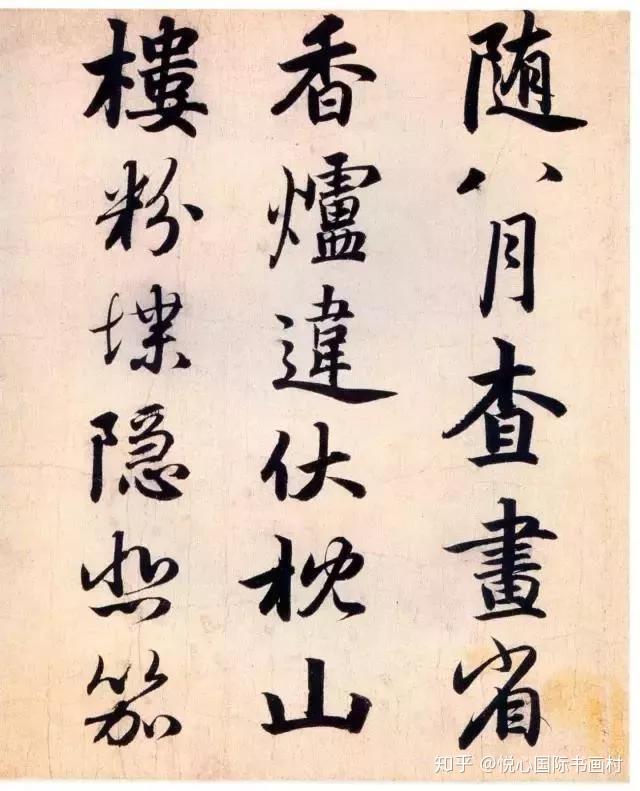 随八月查畫省
香爐違伏枕山
樓粉堞隐悲笳
知乎 @悦心国际书画村